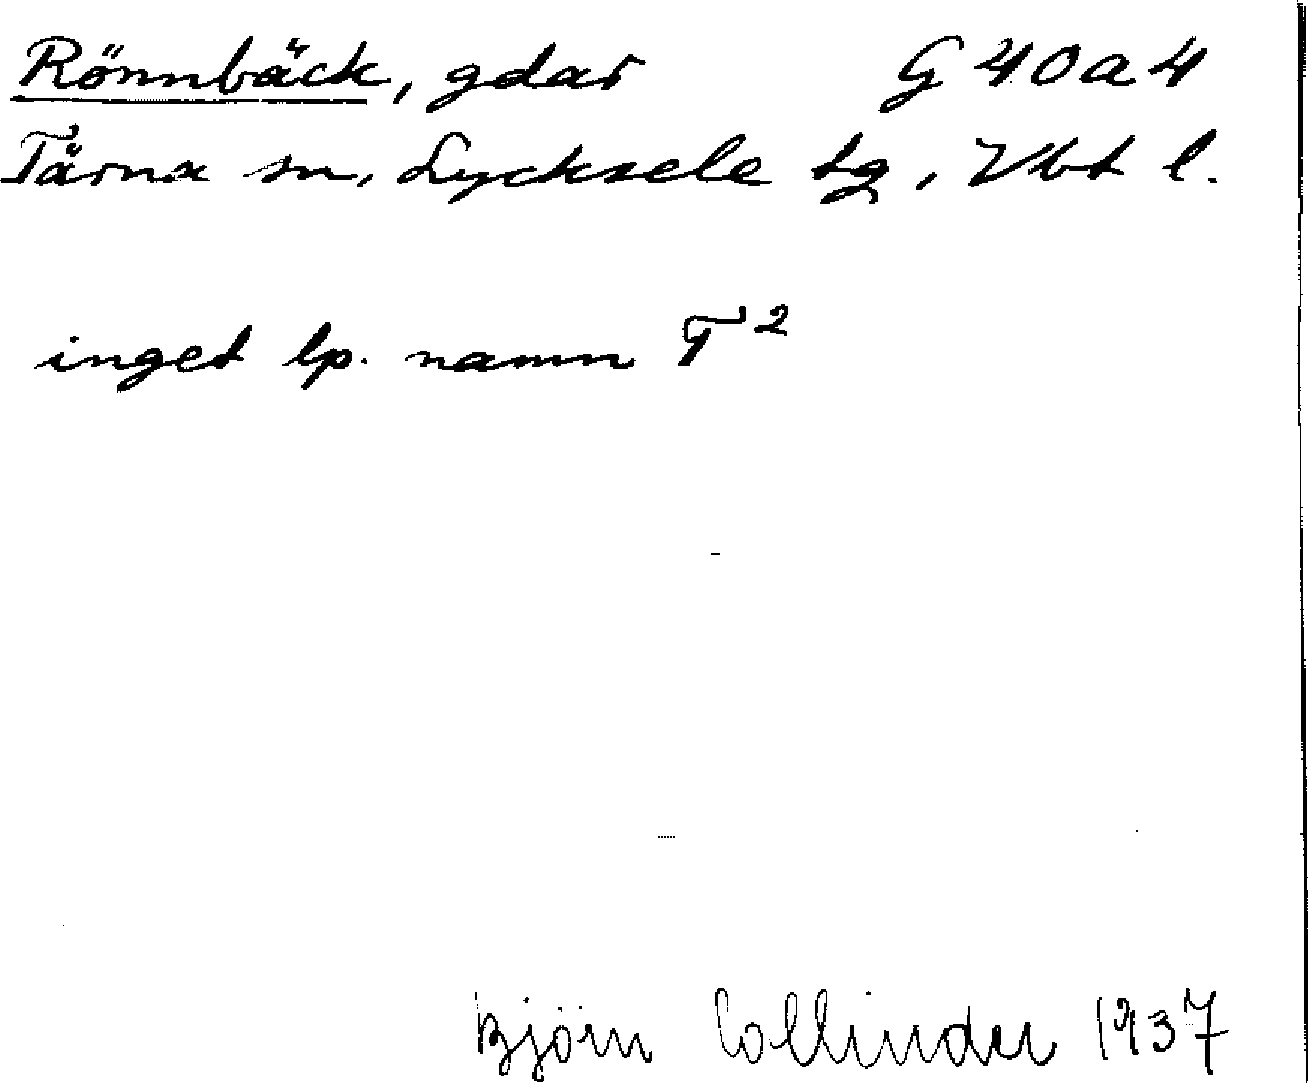 Rönnbäck, gdar G 40 a 4
Tärna sn, Lycksele tg, Vbt l.
inget lp. namn T²
Björn Collinder 1937